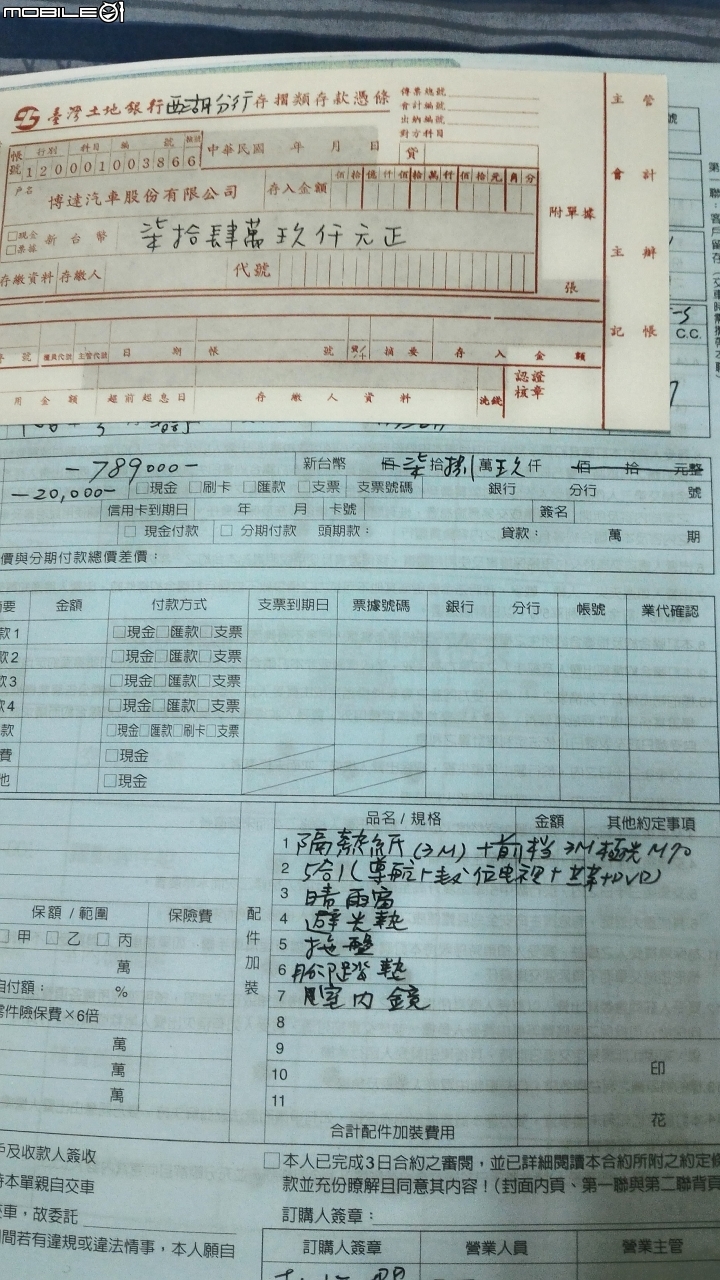 MOBILE01
臺灣土地銀行西湖分行存摺類存款憑條
傳票總號
會計編號
出納編號
對方科目
主管
會計
主辦
記帳
帳號
行別 科目 編號 檢號
120001003866
中華民國 年 月 日
貸
戶名
博達汽車股份有限公司
存入金額
佰拾億仟佰拾萬仟佰拾元角分
附單據
張
□現金
□票據
新台幣
柒拾肆萬玖仟元正
存繳資料
存繳人
代號
號 櫃員代號 主管代號 日期 帳號 摘要 存入金額
用金額 超前起息日 存繳人資料 洗錢
認證
核章
C.C.
-789000-
新台幣 佰柒拾捌萬玖仟 佰 拾 元整
-20,000-
□現金 □刷卡 □匯款 □支票 支票號碼 銀行 分行 號
信用卡到期日 年 月 卡號 簽名
□ 現金付款 □ 分期付款 頭期款： 貸款： 萬 期
價與分期付款總價差價：
要 金額 付款方式 支票到期日 票據號碼 銀行 分行 帳號 業代確認
款1 □現金□匯款□支票
款2 □現金□匯款□支票
款3 □現金□匯款□支票
款4 □現金□匯款□支票
款 □現金□匯款□刷卡□支票
費 □現金
他 □現金
品名/規格 金額 其他約定事項
配件加裝
1 隔熱紙(3M)+前档3M極光M70
2 5合1(導航+數位电視+藍芽+DVD)
3 晴雨窗
4 避光墊
5 拖盤
6 腳踏墊
7 室內鏡
8
9
10
11
印
花
合計配件加裝費用
保額/範圍 保險費
□甲 □乙 □丙
萬
自付額： %
零件險保費×6倍
萬
萬
萬
戶及收款人簽收
持本單親自交車
車，故委託
間若有違規或違法情事，本人願自
□本人已完成3日合約之審閱，並已詳細閱讀本合約所附之約定條
款並充份瞭解且同意其內容！(封面內頁、第一聯與第二聯背頁
訂購人簽章：
訂購人簽章 營業人員 營業主管